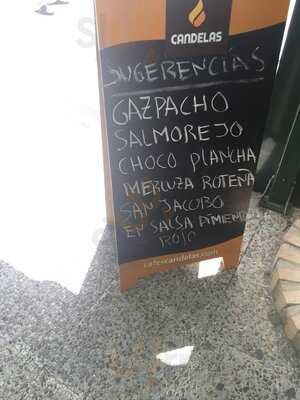 CANDELAS
SUGERENCIAS
GAZPACHO
SALMOREJO
CHOCO PLANCHA
MERLUZA ROTEÑA
SAN JACOBO
EN SALSA PIMIENTO
ROJO
cafescandelas.com